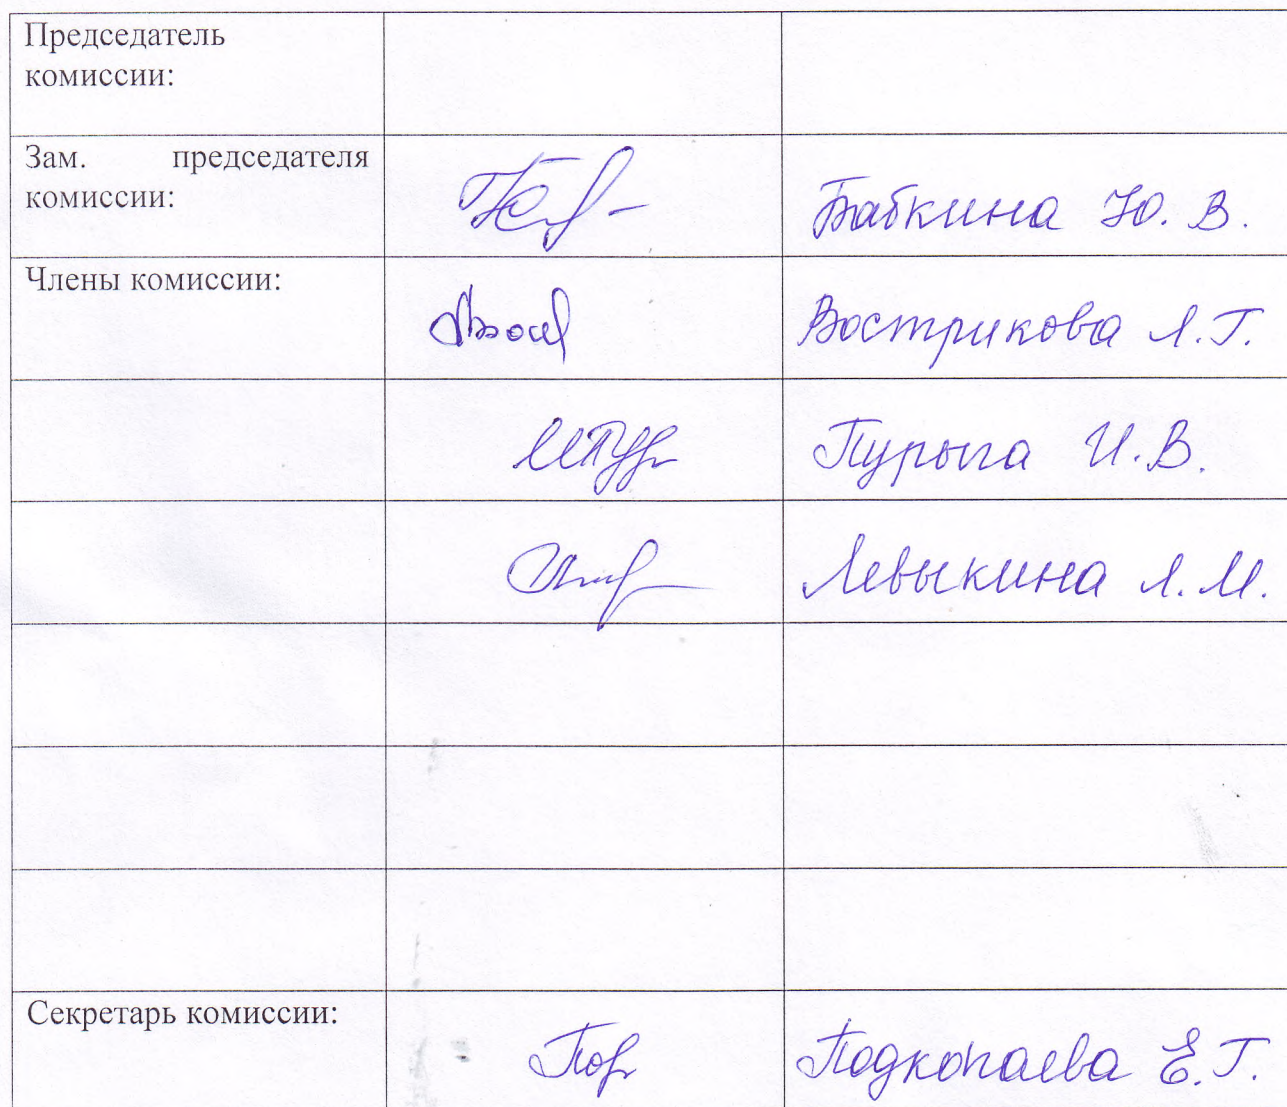 Председатель
комиссии:
Зам. председателя
комиссии:
Бабкина Ю. В.
Члены комиссии:
Вострикова Л.Г.
Пурыга И.В.
Левыкина Л.М.
Секретарь комиссии:
Подкопаева Е.Г.